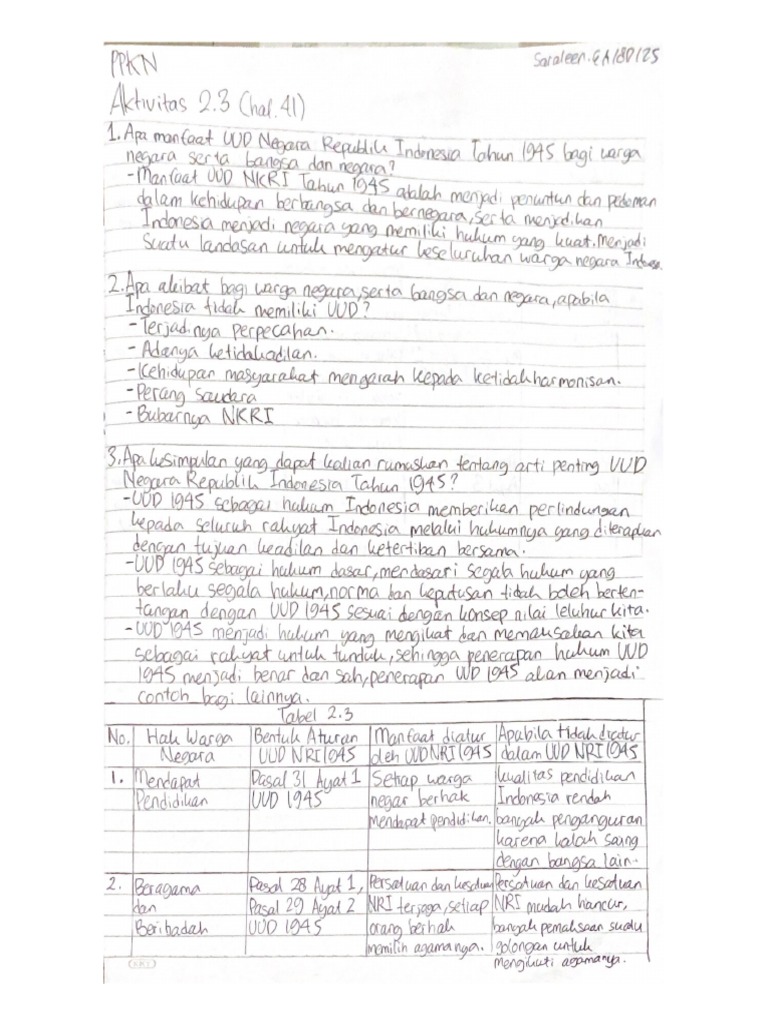 PPKN
Saraleen.
Aktivitas 2.3 (hal.41)
1. Apa manfaat UUD Negara Republik Indonesia Tahun 1945 bagi warga
negara serta bangsa dan negara?
- Manfaat UUD NKRI Tahun 1945 adalah menjadi penuntun dan pedoman
dalam kehidupan berbangsa dan bernegara, serta menjadikan
Indonesia menjadi negara yang memiliki hukum yang kuat. Menjadi
suatu landasan untuk mengatur keseluruhan warga negara
2. Apa akibat bagi warga negara, serta bangsa dan negara, apabila
Indonesia tidak memiliki UUD?
- Terjadinya perpecahan.
- Adanya ketidakadilan.
- Kehidupan masyarakat mengarah kepada ketidakharmonisan.
- Perang saudara
- Bubarnya NKRI
3. Apa kesimpulan yang dapat kalian rumuskan tentang arti penting UUD
Negara Republik Indonesia Tahun 1945?
- UUD 1945 sebagai hukum Indonesia memberikan perlindungan
kepada seluruh rakyat Indonesia melalui hukumnya yang diterapkan
dengan tujuan keadilan dan ketertiban bersama.
- UUD 1945 sebagai hukum dasar, mendasari segala hukum yang
berlaku segala hukum, norma dan keputusan tidak boleh berten-
tangan dengan UUD 1945 sesuai dengan konsep nilai leluhur kita.
- UUD 1945 menjadi hukum yang mengikat dan memaksakan kita
sebagai rakyat untuk tunduk, sehingga penerapan hukum UUD
1945 menjadi benar dan sah, penerapan UUD 1945 akan menjadi
contoh bagi lainnya.
Tabel 2.3
No. Hak Warga Negara
Bentuk Aturan UUD NRI 1945
Manfaat diatur oleh UUD NRI 1945
Apabila tidak diatur dalam UUD NRI 1945
1. Mendapat
Pendidikan
Pasal 31 Ayat 1
UUD 1945
Setiap warga
negar berhak
mendapat pendidikan.
kualitas pendidikan
Indonesia rendah
banyak penganguran
karena kalah saing
dengan bangsa lain.
2. Beragama
dan
Beribadah
Pasal 28 Ayat 1,
Pasal 29 Ayat 2
UUD 1945
Persatuan dan kesatuan
NRI terjaga, setiap
orang berhak
memilih agamanya.
Persatuan dan kesatuan
NRI mudah hancur,
banyak pemaksaan suatu
golongan untuk
mengikuti agamanya.